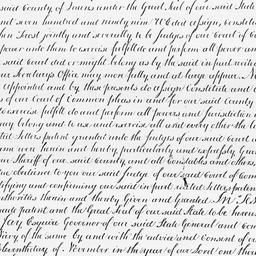 said County of        under the Great Seal of our said State
and seven hundred and ninety nine We did assign, constitute
        jointly and severally to be Judges of our Court of
power unto them to exercise fulfill do and perform all power and
said Court did or might belong as by the said in part
our Secretarys Office may more fully and at large appear
appointed and by these presents do assign Constitute and
of our Court of Common pleas in and for our said County
to exercise fulfill do and perform all powers and Jurisdiction
may belong and to use and exercise all and every other the
Letters patent granted unto the Judges of our said Court
        were herein and hereby particularly and expressly
the Sheriff of our said County and all Constables and others
due obedience to you our said Judge of our said Court of Com
ifying and confirming our said in part        Letters patent
authorities therein and thereby Given and Granted In
made patent and the Great Seal of our said State to be hereun
Jay Esquire Governor of our said State General and Com
Navy of the same by and with the advice and Consent of ou
        day of November in the year of our Lord one thou